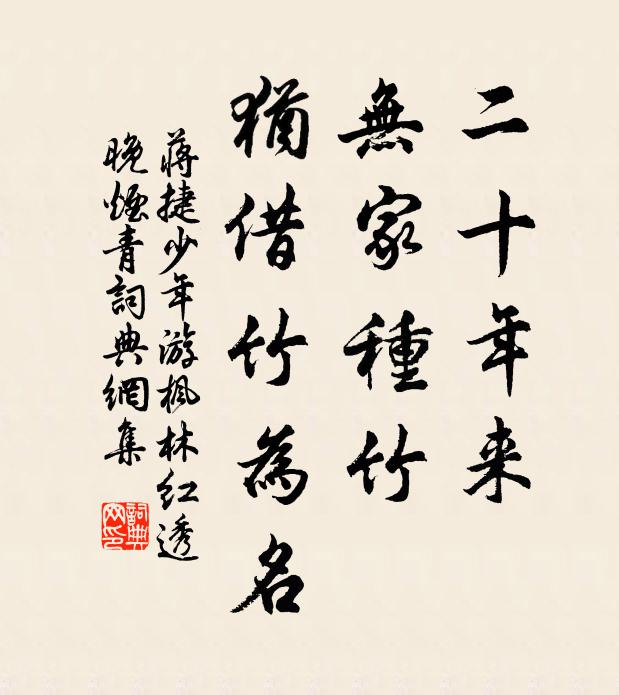 二十年来
無家種竹
猶借竹為名
蔣捷少年游楓林红透
晚煙青詞典網集
詞典网印